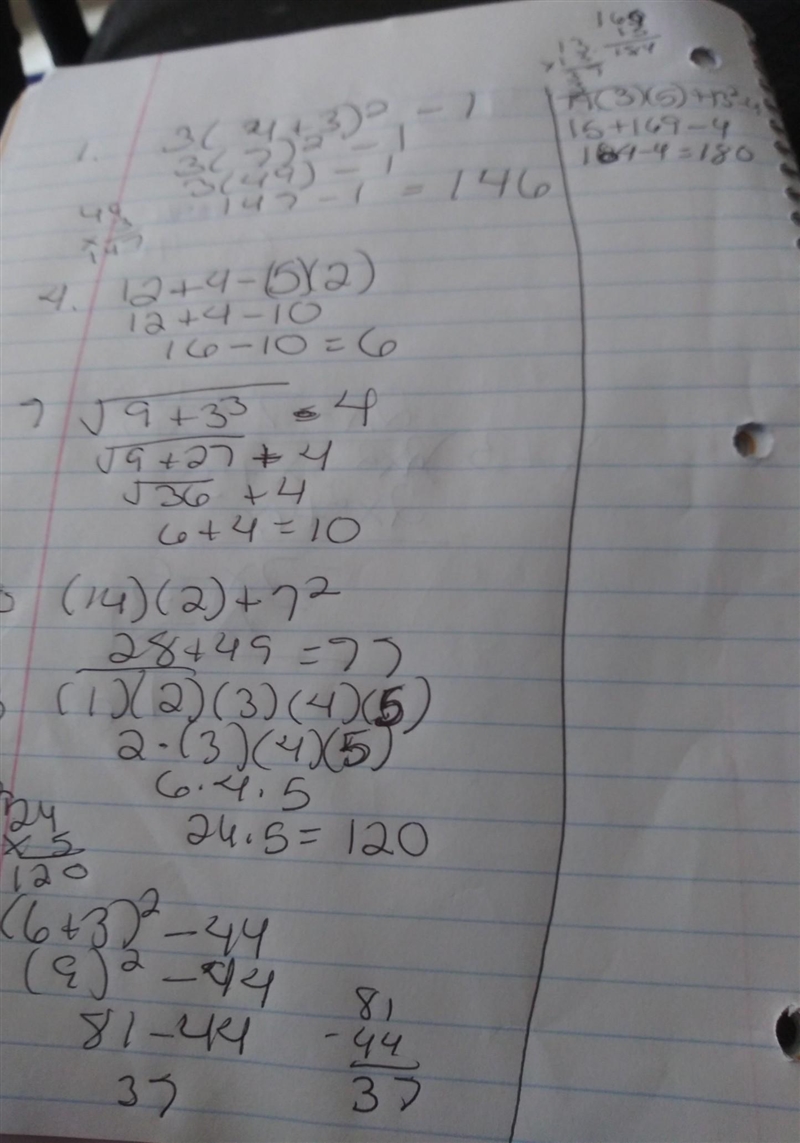 1. 3(4+3)² - 1
3(7)² - 1
3(49) - 1
147 - 1 = 146
49
147
4. 12+4-(5)(2)
12+4-10
16-10=6
7 √9+3³ - 4
√9+27 + 4
√36 +4
6+4=10
(14)(2)+7²
28+49=77
(1)(2)(3)(4)(5)
2·(3)(4)(5)
6·4·5
24·5=120
24
x 5
120
(6+3)²-44
(9)²-44
81-44
37
81
-44
37
169
15
184
(3)(5)+13²-4
15+169-4
184-4=180